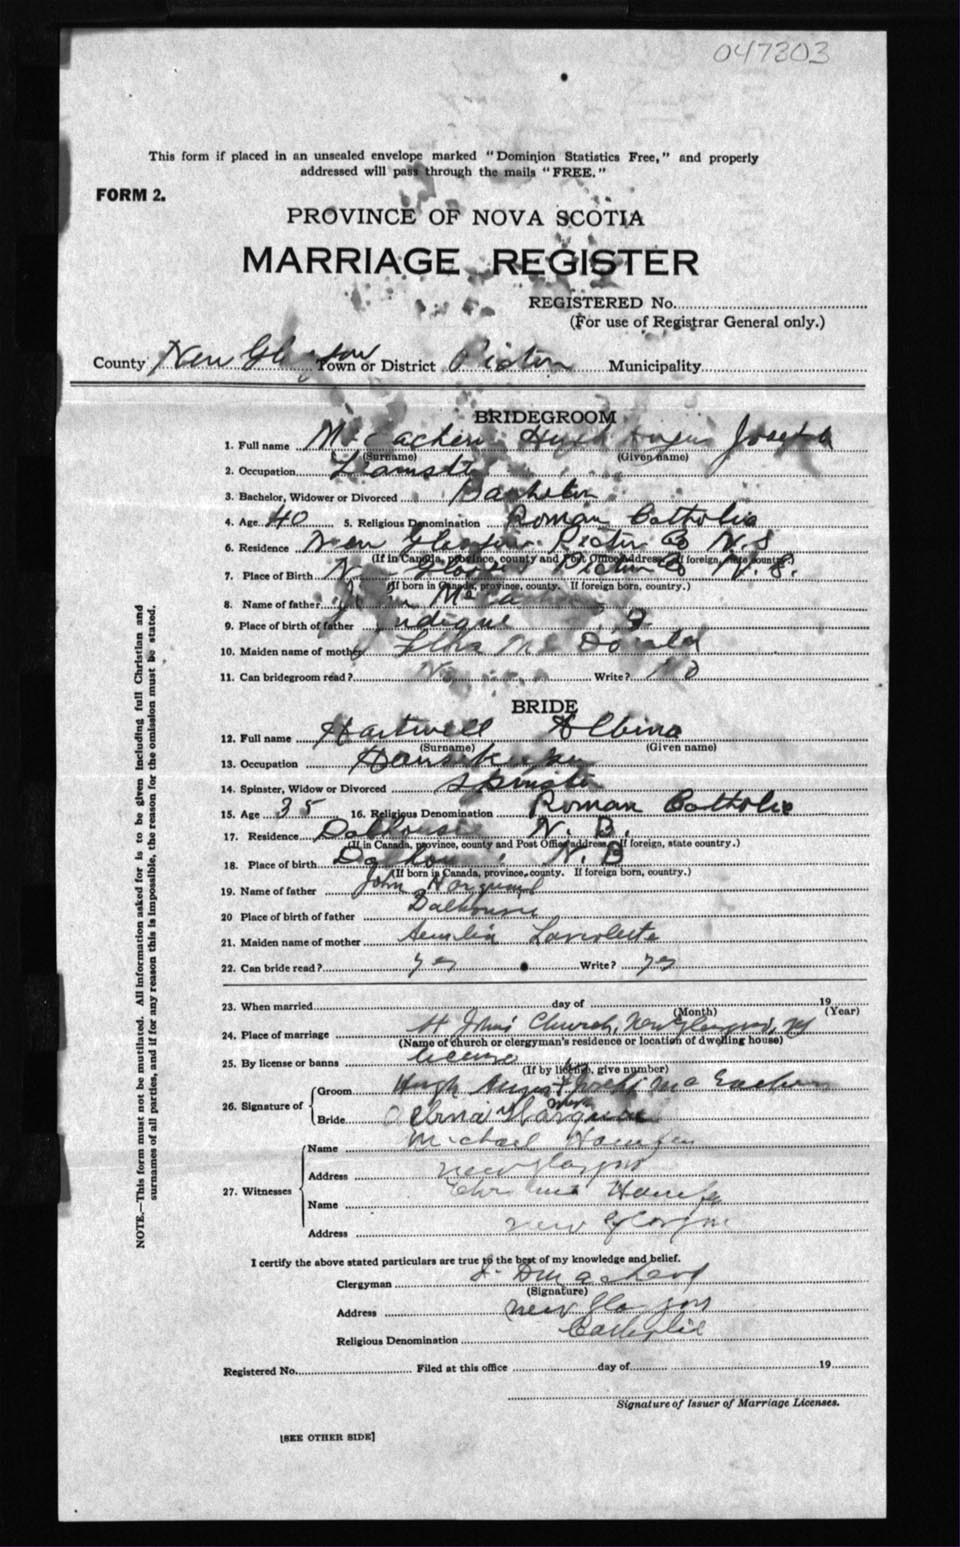 047303
This form if placed in an unsealed envelope marked "Dominion Statistics Free," and properly
addressed will pass through the mails "FREE."
FORM 2.
PROVINCE OF NOVA SCOTIA
MARRIAGE REGISTER
REGISTERED No.
(For use of Registrar General only.)
County New Glasgow Town or District Pictou Municipality
BRIDEGROOM
1. Full name McEachern Hugh Angus Joseph
(Surname) (Given name)
2. Occupation
3. Bachelor, Widower or Divorced Bachelor
4. Age 40 5. Religious Denomination Roman Catholic
6. Residence New Glasgow Pictou Co N.S
(If in Canada, province, county and Post Office address. If foreign, state country.)
7. Place of Birth New Glasgow Pictou Co N.S.
(If born in Canada, province, county. If foreign born, country.)
8. Name of father
9. Place of birth of father
10. Maiden name of mother Flora McDonald
11. Can bridegroom read? No Write? no
BRIDE
12. Full name Hartwell Albina
(Surname) (Given name)
13. Occupation Housekeeper
14. Spinster, Widow or Divorced Spinster
15. Age 35 16. Religious Denomination Roman Catholic
17. Residence Dalhousie N.B.
(If in Canada, province, county and Post Office address. If foreign, state country.)
18. Place of birth Dalhousie N.B
(If born in Canada, province, county. If foreign born, country.)
19. Name of father John
20 Place of birth of father Dalhousie
21. Maiden name of mother
22. Can bride read? yes Write? yes
23. When married day of 19
(Month) (Year)
24. Place of marriage St Johns Church, New Glasgow, NS
(Name of church or clergyman's residence or location of dwelling house)
25. By license or banns license
(If by license, give number)
26. Signature of
Groom Hugh Angus Joseph MacEachern
Bride Albina
27. Witnesses
Name Michael
Address New Glasgow
Name
Address New Glasgow
I certify the above stated particulars are true to the best of my knowledge and belief.
Clergyman
(Signature)
Address New Glasgow
Religious Denomination Catholic
Registered No. Filed at this office day of 19
Signature of Issuer of Marriage Licenses.
[SEE OTHER SIDE]
NOTE.—This form must not be mutilated. All information asked for is to be given including full Christian and
surnames of all parties, and if for any reason this is impossible, the reason for the omission must be stated.